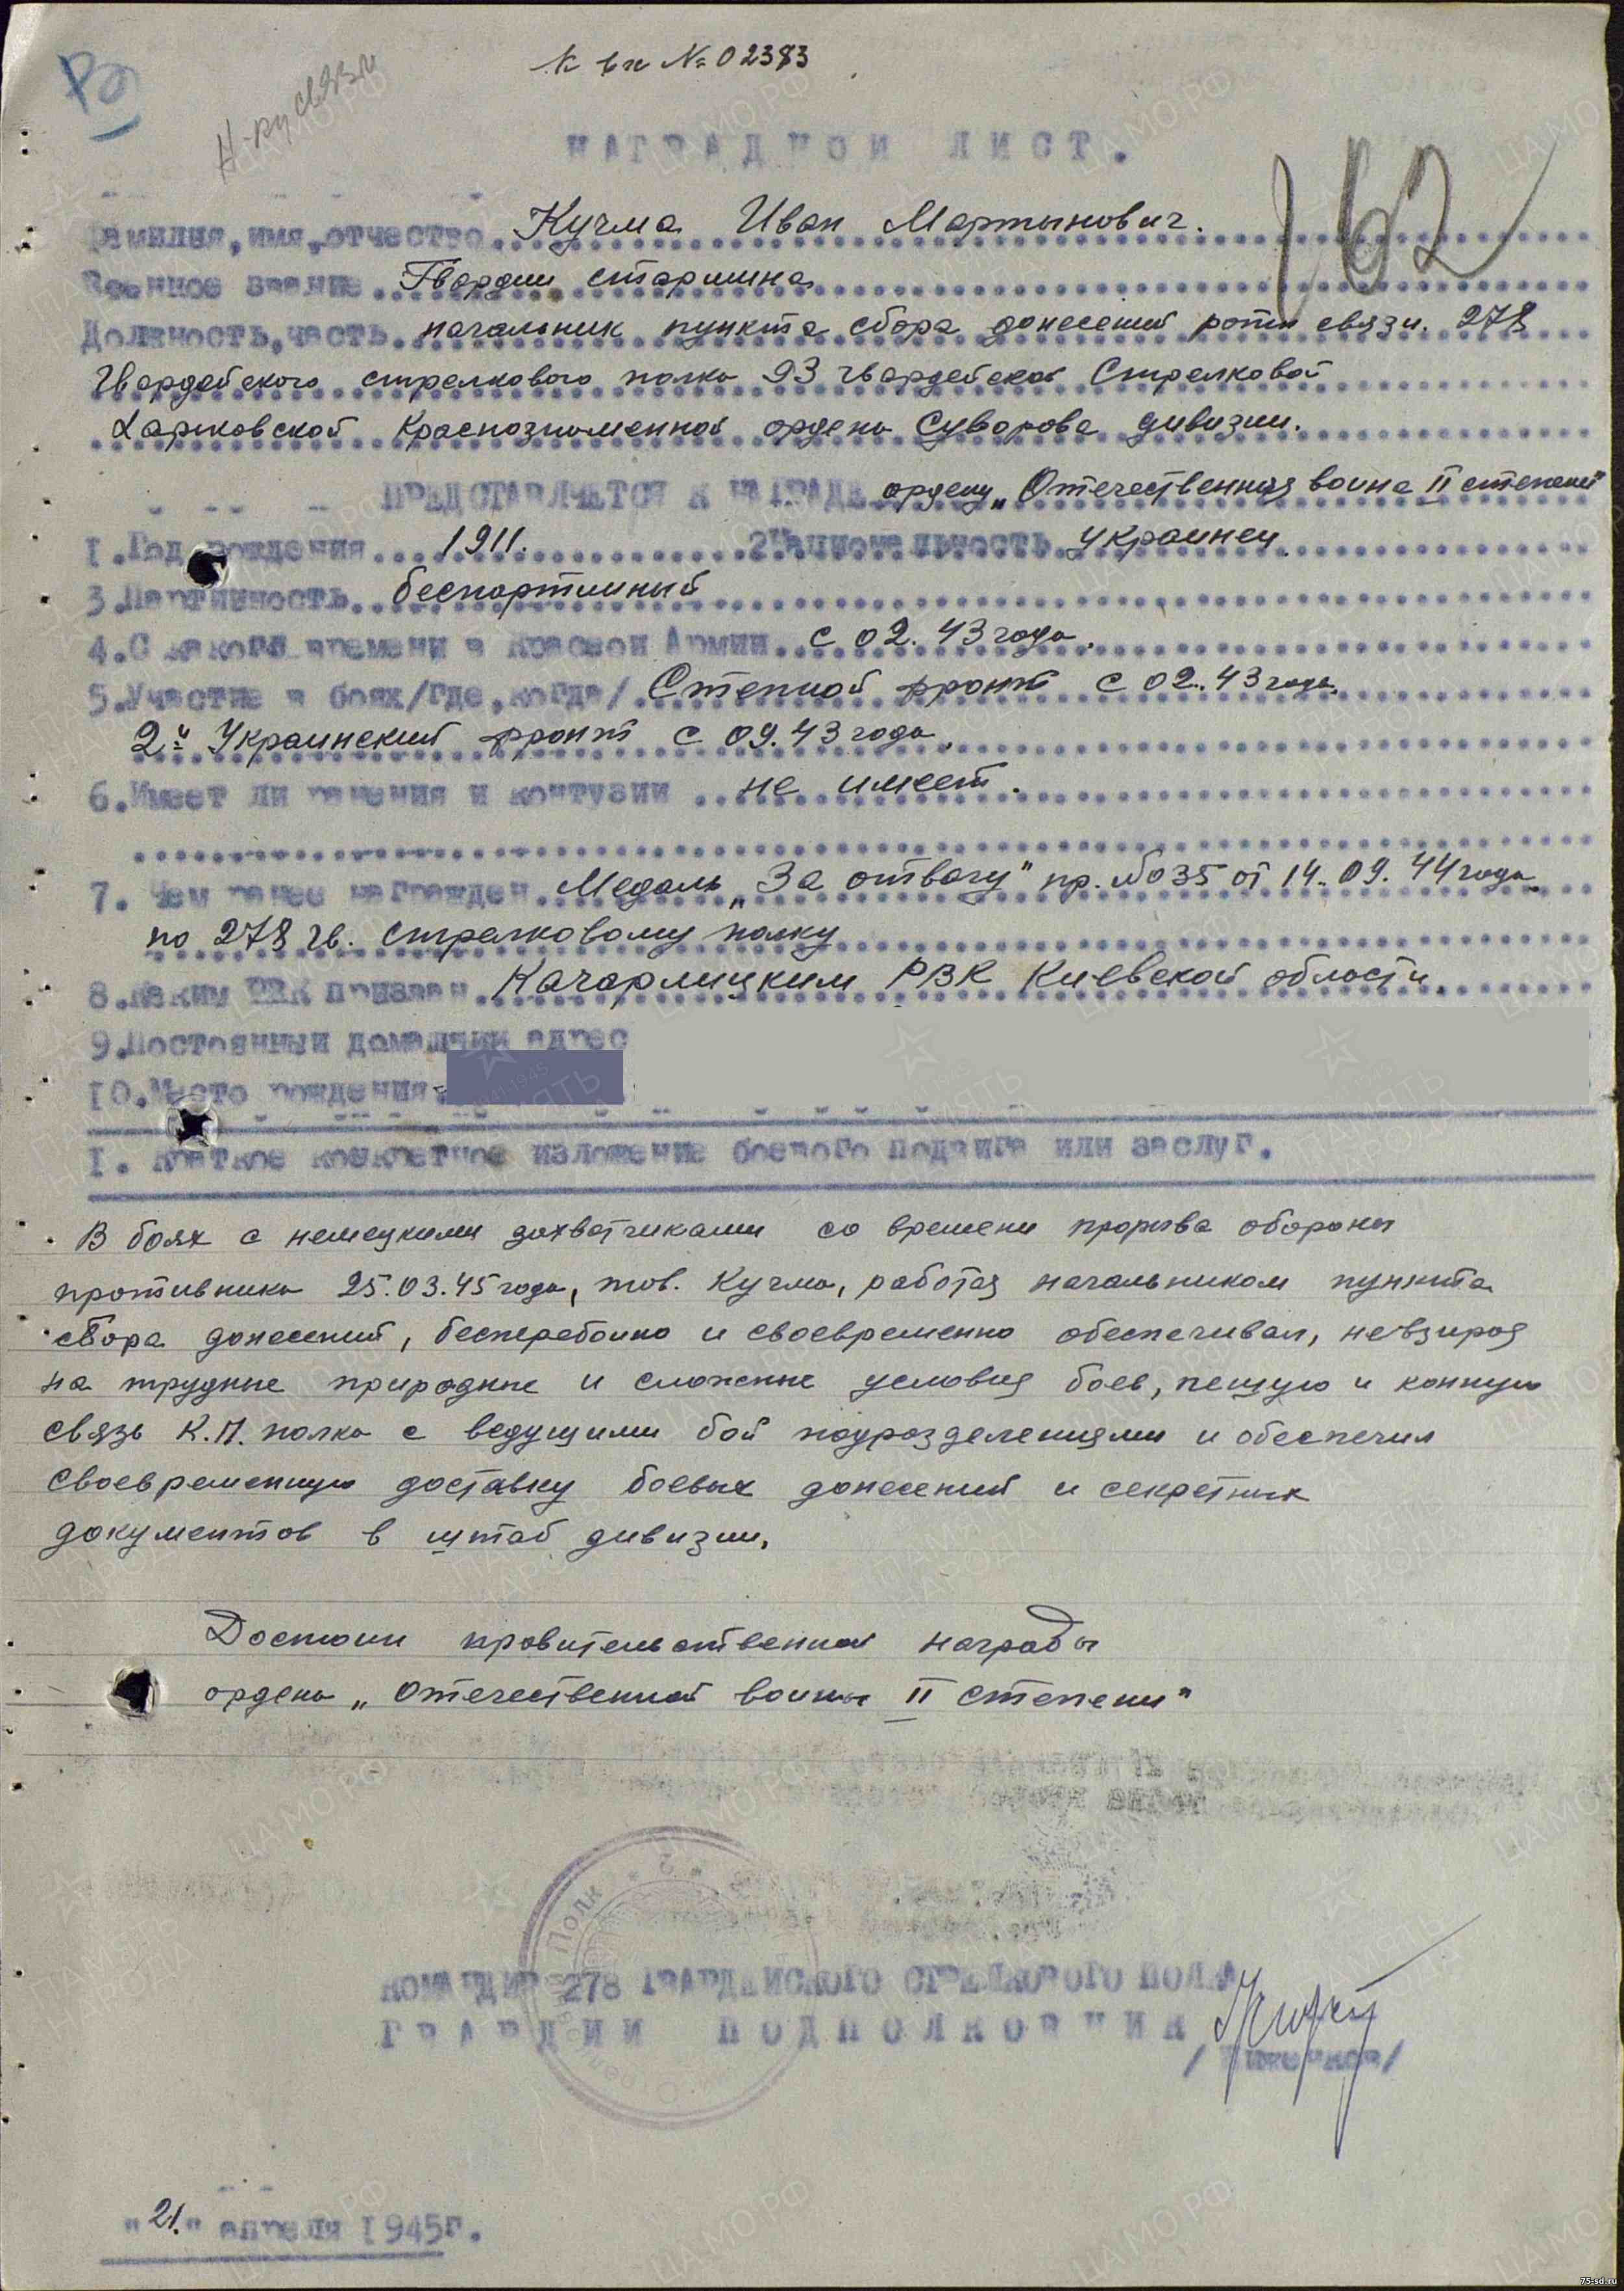 К вх № 02383
Н-ку связи
162
НАГРАДНОЙ ЛИСТ.
Фамилия, имя, отчество Кучма Иван Мартынович.
Военное звание Гвардии старшина
Должность, часть начальник пункта сбора донесений роты связи. 278
Гвардейского стрелкового полка 93 гвардейской Стрелковой
Харьковской Краснознаменной ордена Суворова дивизии.
ПРЕДСТАВЛЯЕТСЯ К НАГРАДЕ ордену „Отечественная война II степени"
1. Год рождения 1911. 2. Национальность украинец.
3. Партийность беспартийный
4. С какого времени в Красной Армии с 02.43 года.
5. Участие в боях /где, когда/ Степной фронт с 02.43 года.
2й Украинский фронт с 09.43 года.
6. Имеет ли ранения и контузии не имеет.
7. Чем ранее награжден Медаль „За отвагу" пр. №035 от 14.09.44 года
по 278 гв. стрелковому полку
8. Каким РВК призван Качарлицким РВК Киевской области.
9. Постоянный домашний адрес
10. Место рождения
I. Краткое конкретное изложение боевого подвига или заслуг.
В боях с немецкими захватчиками со времени прорыва обороны
противника 25.03.45 года, тов. Кучма, работая начальником пункта
сбора донесений, бесперебойно и своевременно обеспечивал, невзирая
на трудные природные и сложные условия боев, пешую и конную
связь К.П. полка с ведущими бой подразделениями и обеспечил
своевременную доставку боевых донесений и секретных
документов в штаб дивизии.
Достоин правительственной награды
ордена „Отечественной войны II степени"
КОМАНДИР 278 ГВАРДЕЙСКОГО СТРЕЛКОВОГО ПОЛКА
ГВАРДИИ ПОДПОЛКОВНИК
"21." апреля 1945г.
75-sd.ru